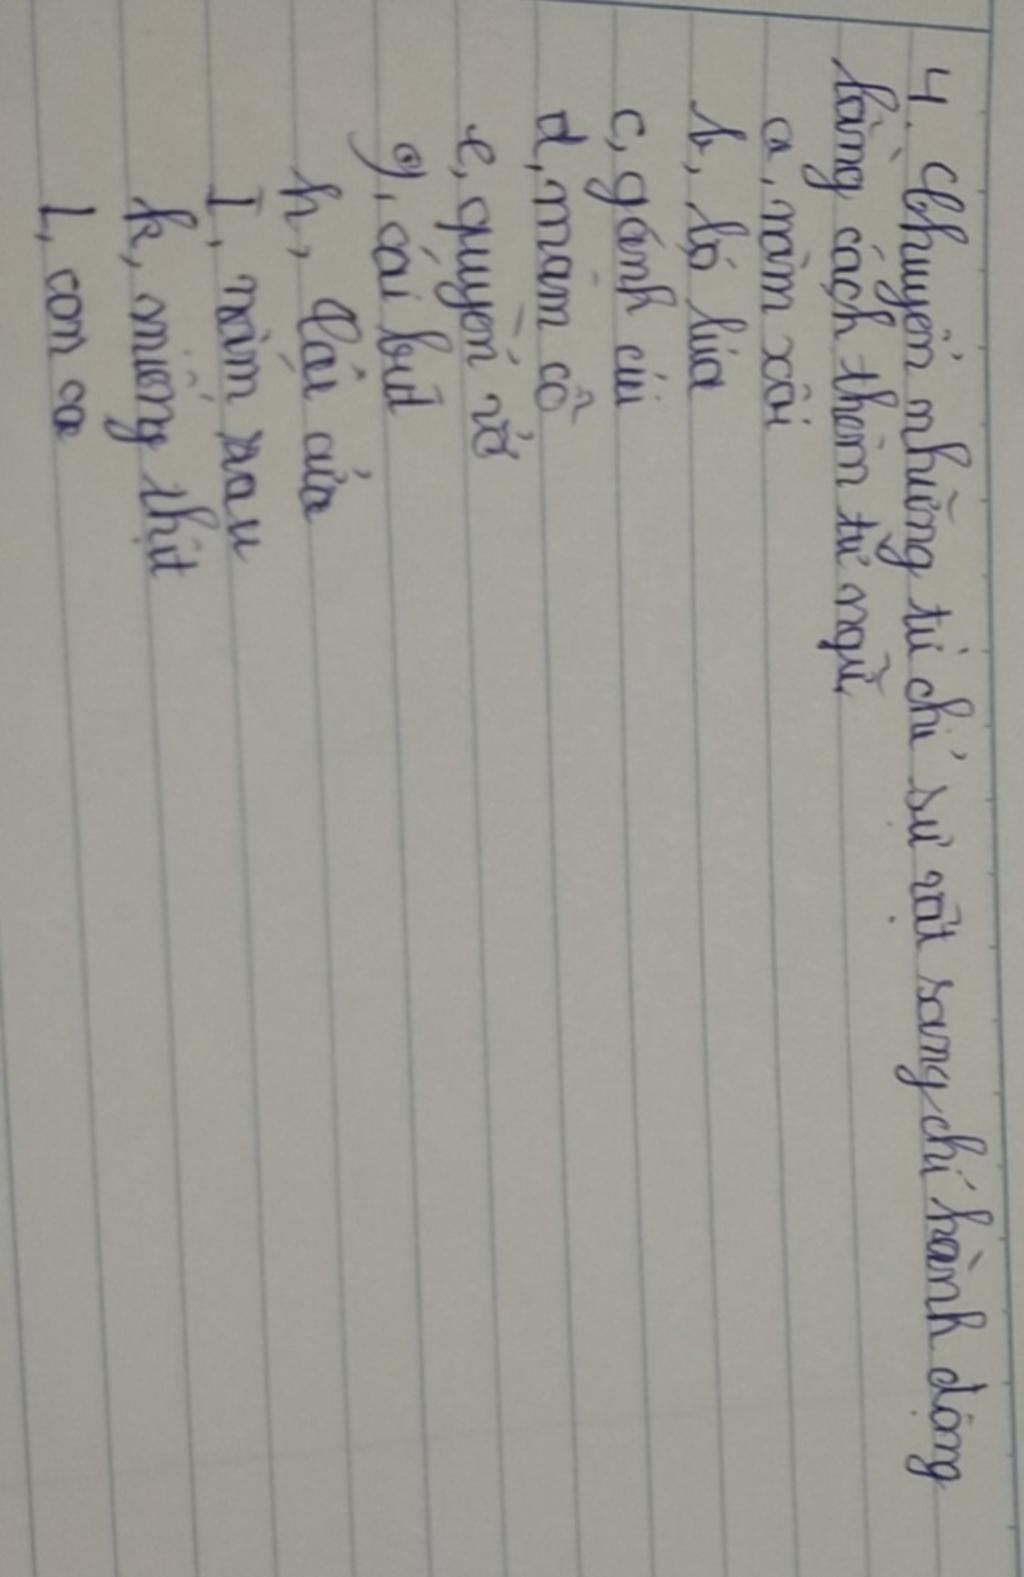 4. Chuyển những từ chỉ sự vật sang chỉ hành động
bằng cách thêm từ ngữ
a, nắm xôi
b, bó lúa
c, gánh củi
d, mâm cỗ
e, quyển vở
g, cái bút
h, cửa
I, nắm rau
k, miếng thịt
l, con cá